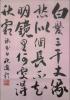 白髮三千丈緣
愁似個長不知
明鏡裏何處得
秋霜